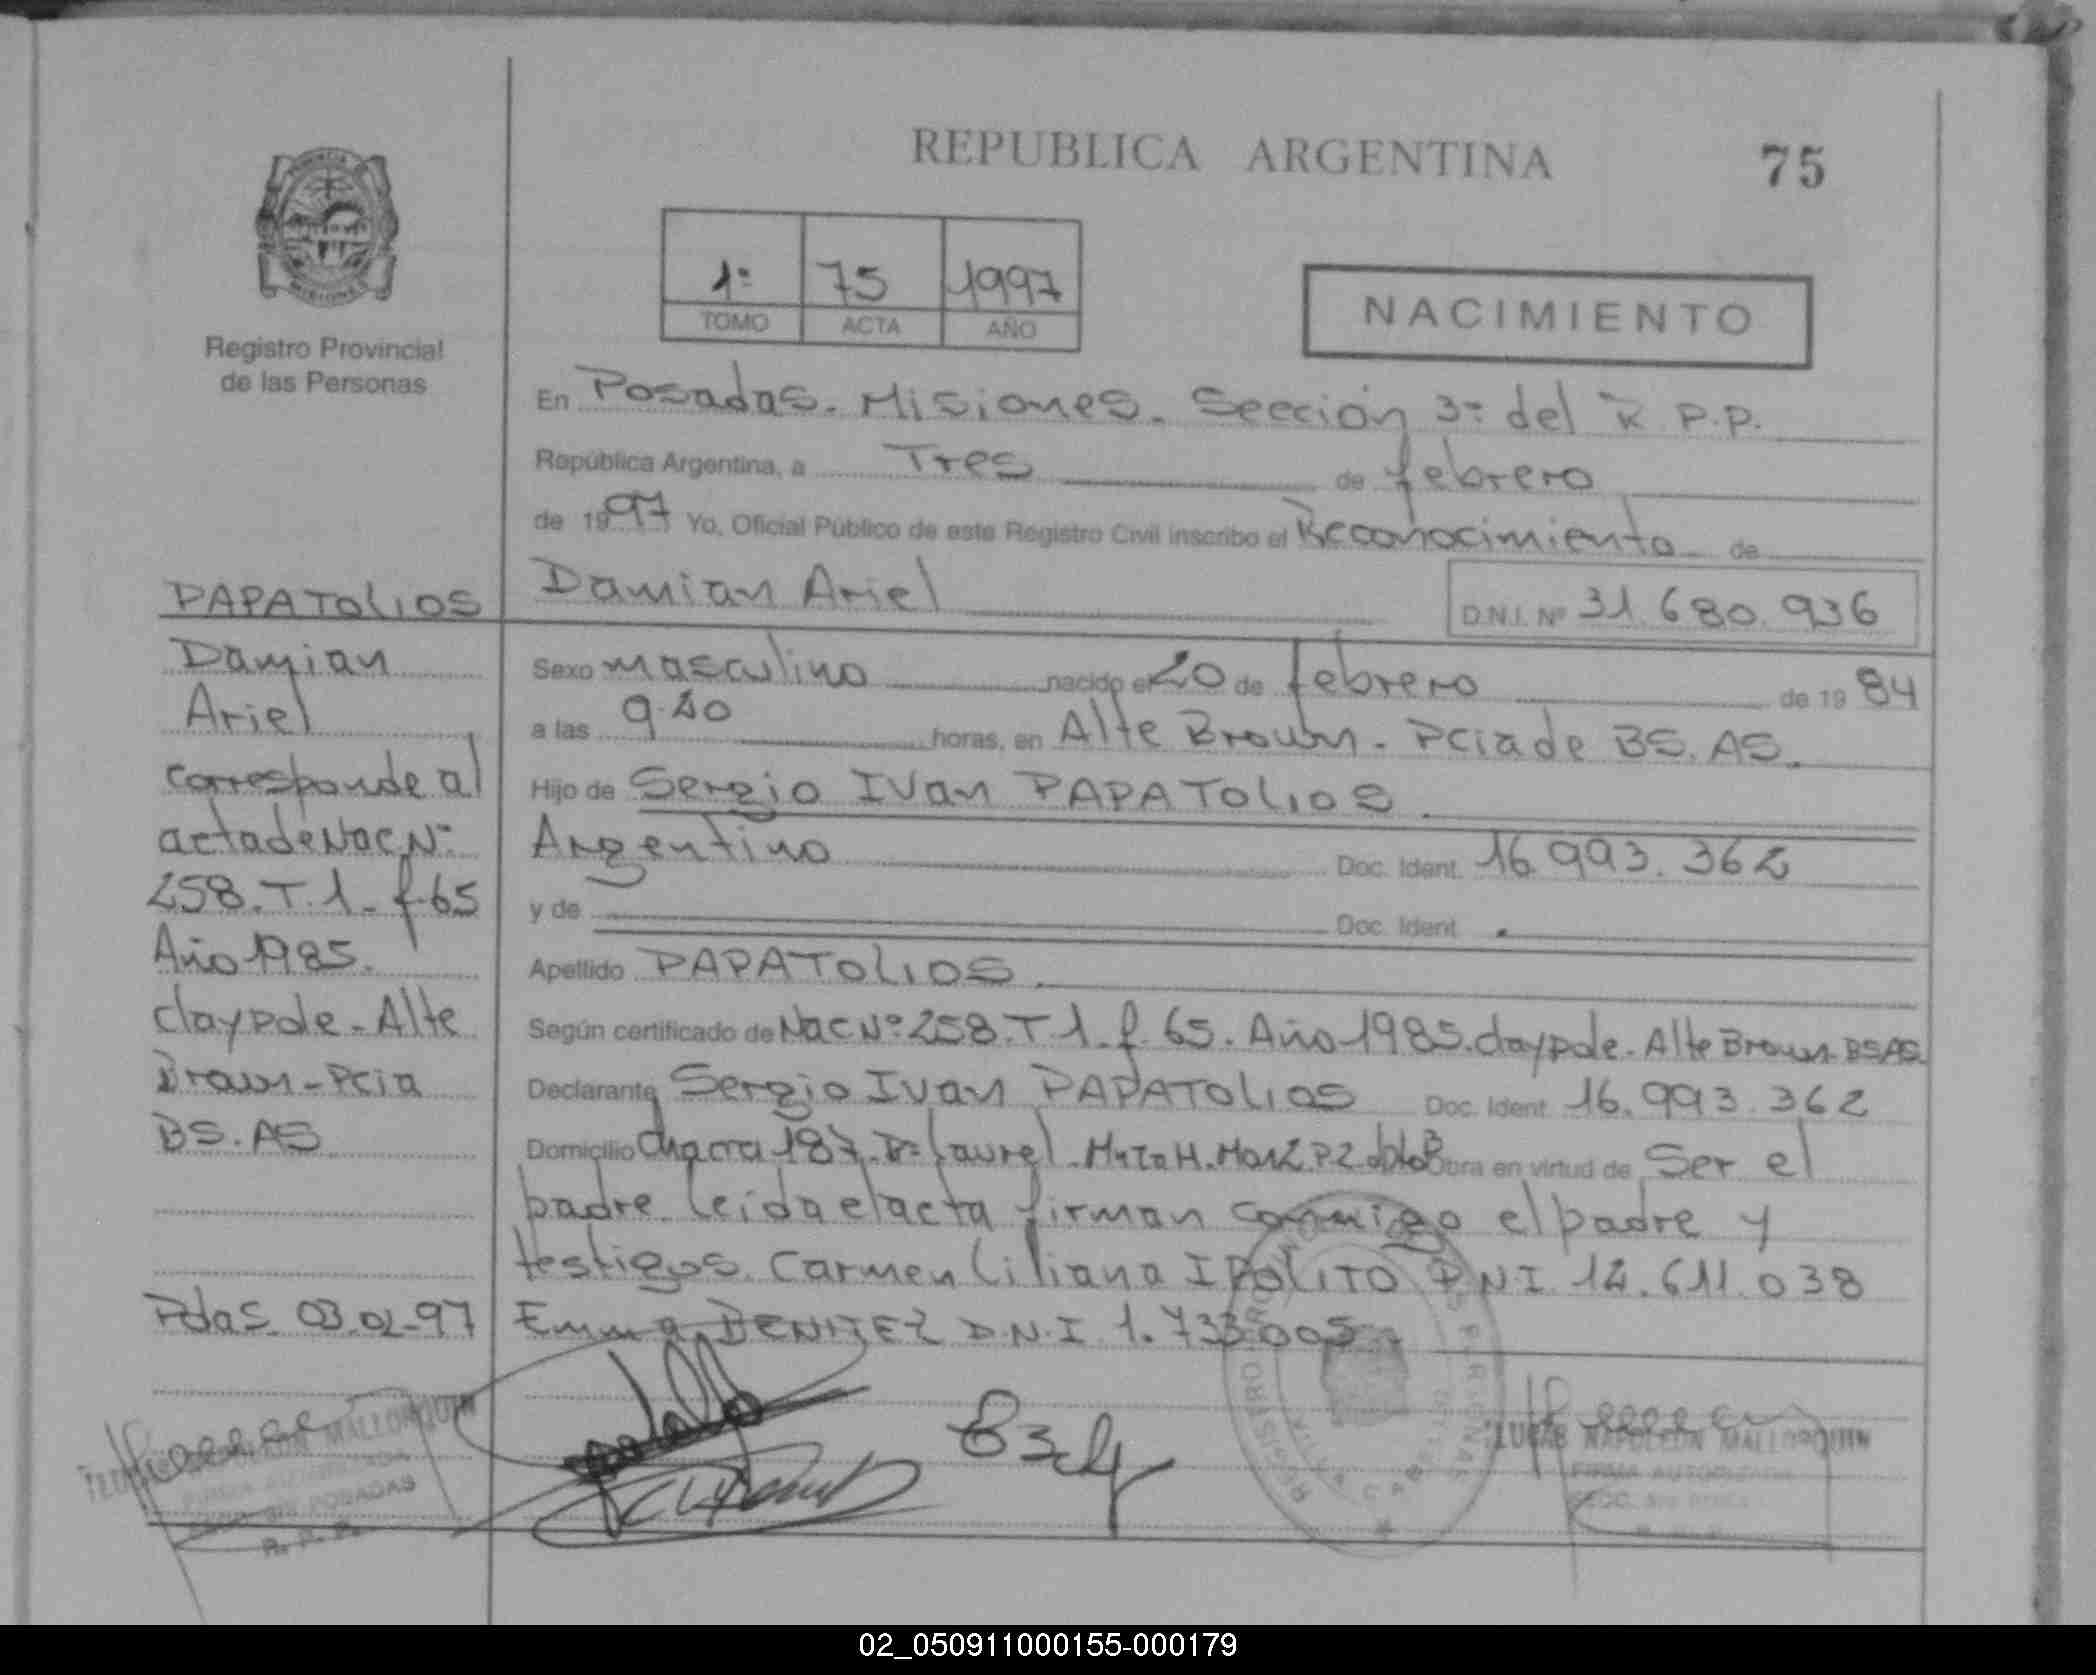 REPUBLICA ARGENTINA
75
1º 75 1997
TOMO ACTA AÑO
NACIMIENTO
Registro Provincial
de las Personas
En Posadas. Misiones. Sección 3º del R.P.P.
República Argentina, a Tres de febrero
de 1997 Yo, Oficial Público de este Registro Civil inscribo el Reconocimiento de
Damian Ariel D.N.I. Nº 31.680.936
Sexo masculino nacido el 20 de febrero de 1984
a las horas, en Alte Brown. Pcia de BS. AS.
Hijo de Sergio Ivan PAPATOLIOS
Argentino Doc. Ident. 16.993.362
y de Doc. Ident.
Apellido PAPATOLIOS
Según certificado de Nac Nº 258. T. 1. f. 65. Año 1985. claypole. Alte Brown. BSAS.
Declarante Sergio Ivan PAPATOLIOS Doc. Ident. 16.993.362
Domicilio Chacra 187. Bº laurel. obra en virtud de Ser el
padre. leida el acta firman conmigo el padre y
testigos. Carmen Liliana IPOLITO D.N.I. 611.038
Emma BENITEZ D.N.I 1.733.005
PAPATOLIOS
Damian
Ariel
corresponde al
acta de Nac Nº
258. T. 1. f-65
Año 1985.
claypole - Alte
Brown - Pcia
BS. AS
Pdas. 03.02-97
MALLORQUIN
POSADAS
R. P. P.
LUCAS NAPOLEON MALLORQUIN
FIRMA AUTORIZADA
02_050911000155-000179